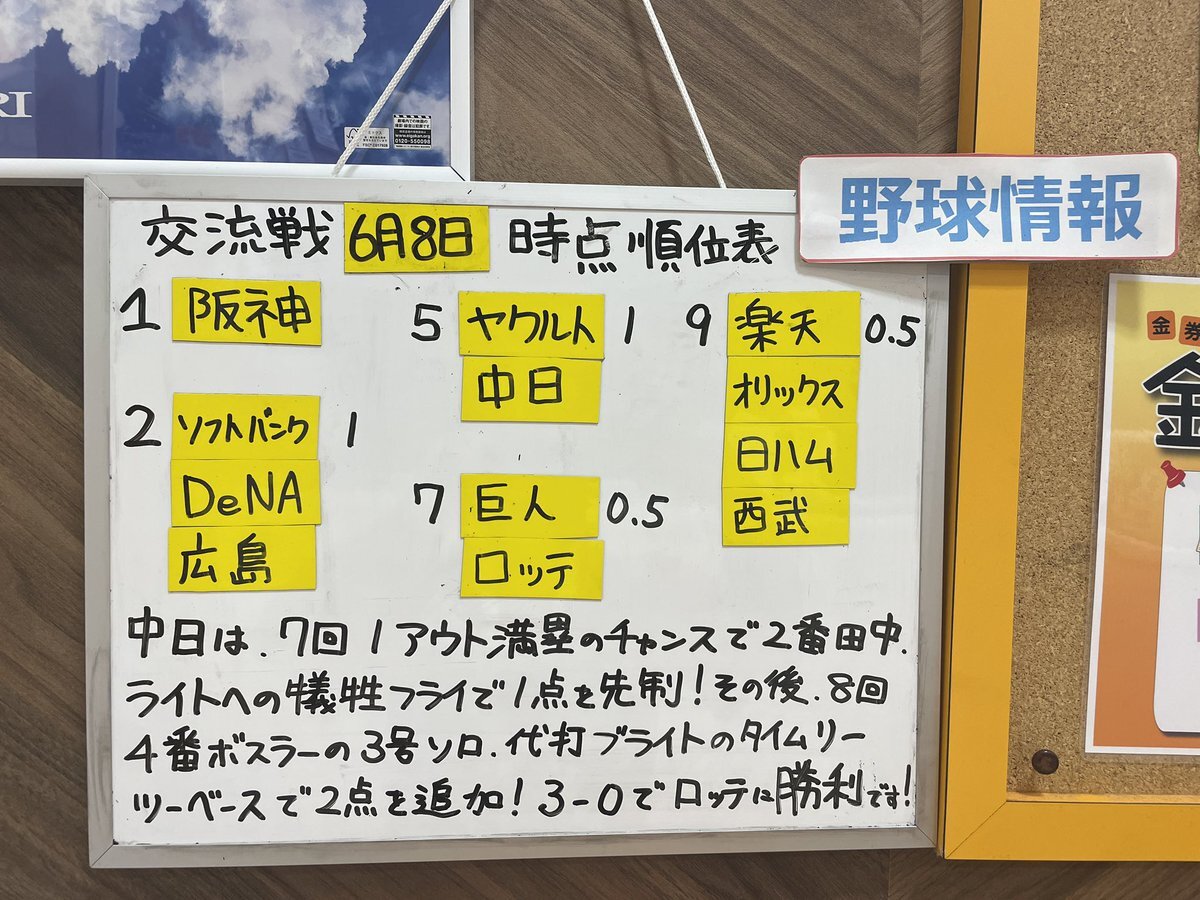 RI
www.eigakan.org
0120-550098
野球情報
交流戦 6月8日 時点順位表
1 阪神
2 ソフトバンク 1
DeNA
広島
5 ヤクルト 1
中日
7 巨人 0.5
ロッテ
9 楽天 0.5
オリックス
日ハム
西武
中日は、7回1アウト満塁のチャンスで2番田中、
ライトへの犠牲フライで1点を先制!その後、8回
4番ボスラーの3号ソロ、代打ブライトのタイムリー
ツーベースで2点を追加!3-0でロッテに勝利です!
金券
金